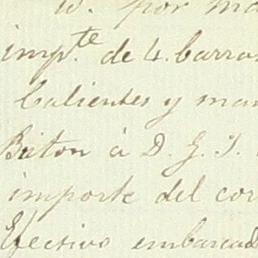 por
imp.te de 4. barra
Calientes y man
Briton à D. G. J.
importe del cor
Efectivo embarcad